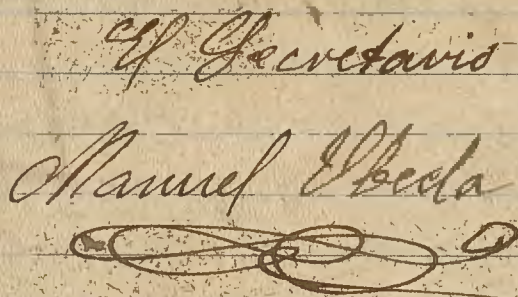 El Secretario
Manuel Ubeda